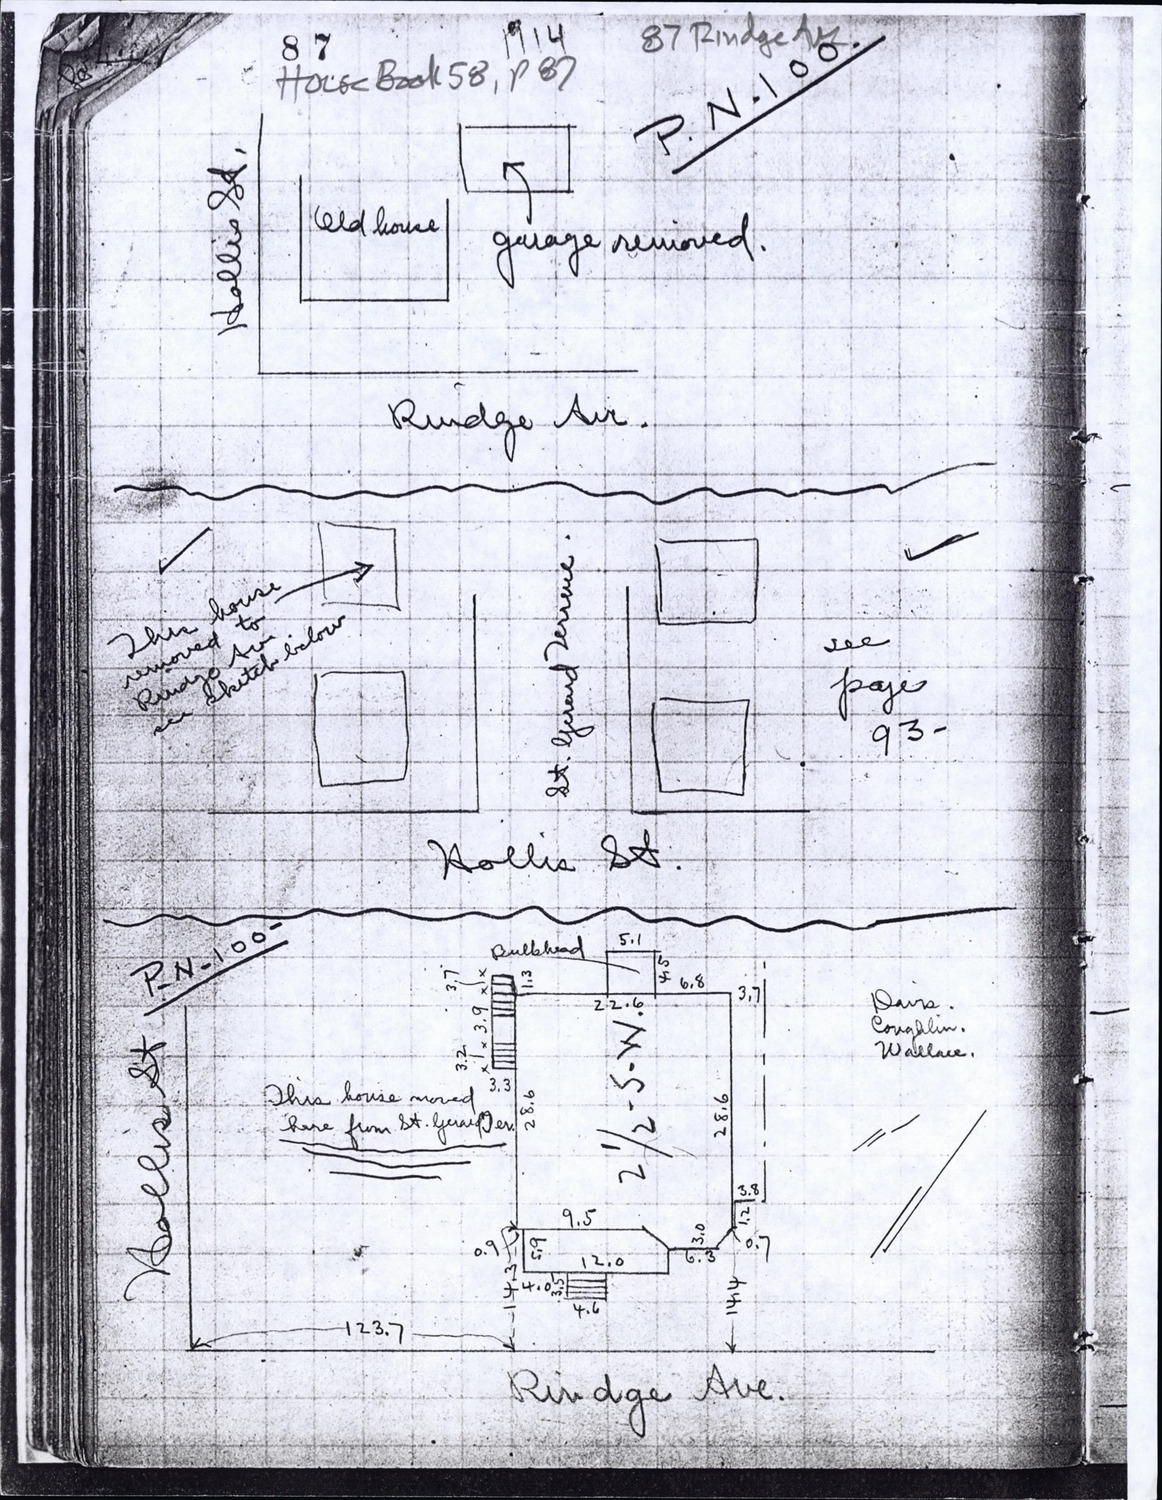 87
1914
87 Rindge Ave.
House Book 58, p 87
P.N.100
Hollis St.
Old house
garage removed.
Rindge Av.
This house
removed to
Rindge Av.
see sketch below
St. Gerard Terrace.
see
page
93-
Hollis St.
P.N-100-
Bulkhead
5.1
4.5
6.8
3.7
11.3
22.6
3.7
x 3.9 x
3.2
3.3
Hollis St
This house moved
here from St. Gerard Ter.
28.6
2 1/2-S-W.
28.6
Davis.
Coughlin.
Wallace.
3.8
1.2
0.7
9.5
3.0
6.3
0.9
5.9
12.0
4.0
3.5
4.6
14.3
14.4
123.7
Rindge Ave.